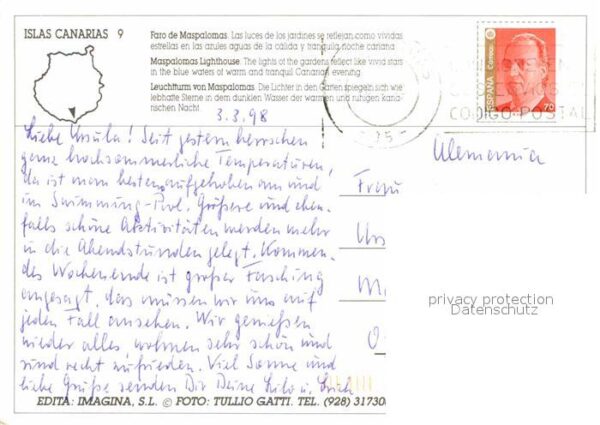 ISLAS CANARIAS 9
Faro de Maspalomas. Las luces de los jardines se reflejan como vívidas
estrellas en las azules aguas de la cálida y tranquila noche canaria
Maspalomas Lighthouse. The lights of the gardens reflect like vivid stars
in the blue waters of warm and tranquil Canarian evening
Leuchtturm von Maspalomas. Die Lichter in den Garten spiegeln sich wie
lebhafte Sterne in dem dunklen Wasser der warmen und ruhigen kana-
rischen Nacht
ESPAÑA
Correos
70
CODIGO POSTAL
3.3.98
Liebe Ursula! Seit gestern herrschen
ganz hochsommerliche Temperaturen,
da ist man bestens aufgehoben am und
im Swimming-Pool. Größere und eben-
falls schöne Aktivitäten werden mehr
in die Abendstunden gelegt. Kommen-
des Wochenende ist großer Fasching
angesagt, das müssen wir uns auf
jeden Fall ansehen. Wir genießen
wieder alles, wohnen sehr schön und
sind recht zufrieden. Viel Sonne und
liebe Grüße senden Dir Deine
Alemania
Frau
Urs
M
O
privacy protection
Datenschutz
EDITA: IMAGINA, S.L. © FOTO: TULLIO GATTI. TEL. (928) 317308